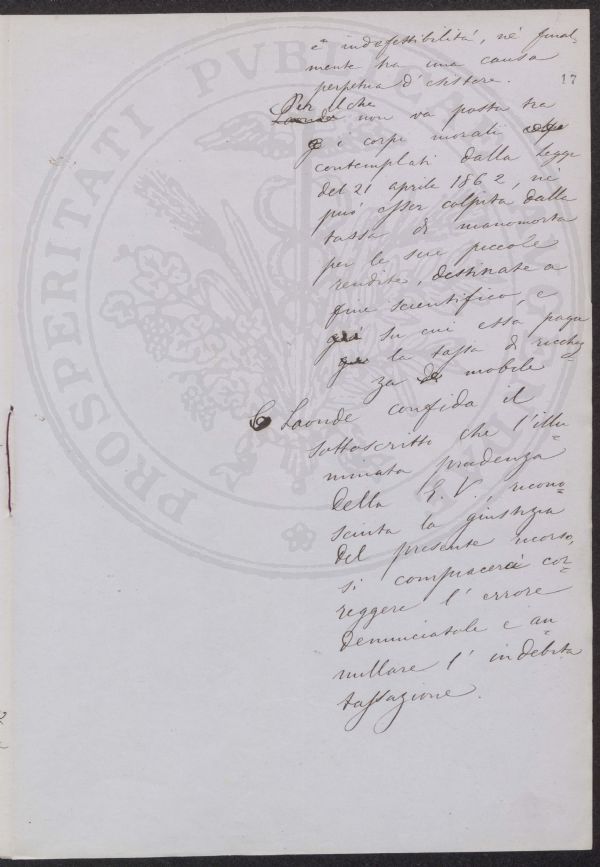 è indefettibilità, né final-
mente ha una causa
perpetua d'esistere.
17
Per il che
Laonde non va posta tra
i corpi morali
contemplati dalla Legge
del 21 aprile 1862, né
può esser colpita dalla
tassa di manomorta
per le sue piccole
rendite, destinate a
fine scientifico, e
già su cui essa paga
già la tassa di ricchez
za di mobile
Laonde confida il
sottoscritto che l'illu=
minata prudenza
della E. V., ricono=
sciuta la giustizia
del presente ricorso,
si compiacerà cor=
reggere l'errore
denunciatole e an
nullare l'indebita
tassazione.
PROSPERITATI PUBLICAE